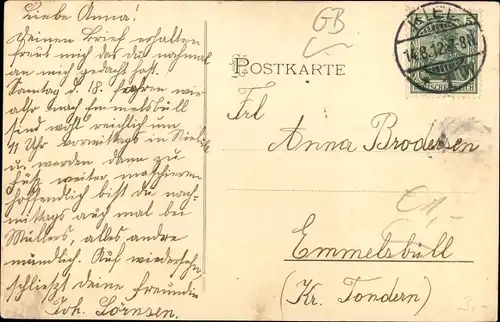 Liebe Anna!
Deinen Brief erhalten
freut mich das du nochmal
an mich gedacht hast.
Sonntag d. 18. fahren wir
also nach Emmelsbüll
sind wohl reichlich um
11 Uhr vormittags in
u. werden dann zu
Fuß weiter marschieren
hoffentlich bist du nach-
mittags auch mal bei
Müllers, alles andre
mündlich. Auf wiedersehn
schließt deine Freundin
Joh. Lörnsen.
GB
14.8.12. 8N
DEUTSCHES REICH
POSTKARTE
Frl
Anna Brodersen
Emmelsbüll
(Kr. Tondern)